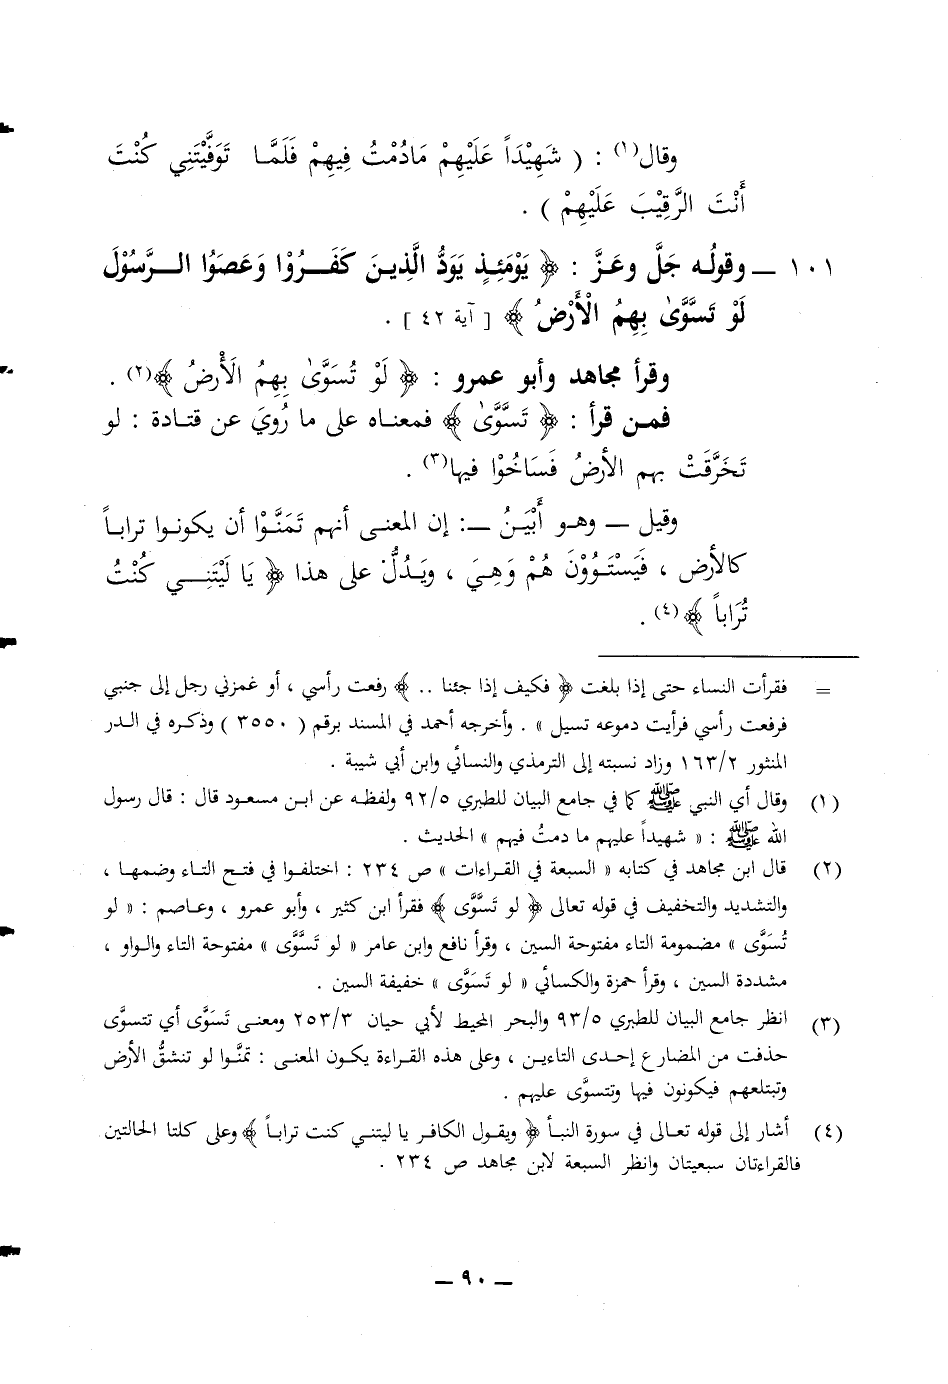 وقال(١) : ( شَهِيْدَاً عَلَيْهِمْ مَادُمْتُ فِيهِمْ فَلَمَّا تَوَفَّيْتَنِي كُنْتَ
أَنْتَ الرَّقِيْبَ عَلَيْهِمْ ) .
١٠١ ــ وقولُه جَلَّ وعَزَّ : ﴿ يَوْمَئِذٍ يَوَدُّ الَّذِينَ كَفَرُوْا وَعَصَوُا الرَّسُوْلَ
لَوْ تَسَّوَّىٰ بِهِمُ الْأَرْضُ ﴾ [ آية ٤٢ ] .
وقرأ مجاهد وأبو عمرو : ﴿ لَوْ تُسَوَّىٰ بِهِمُ الَأْرضُ ﴾(٢) .
فمـن قرأ : ﴿ تَسَّوَّىٰ ﴾ فمعنـاه على ما رُوِيَ عن قتـادة : لو
تَخَرَّقَتْ بهم الأرضُ فَسَاخُوْا فيها(٣) .
وقيل ــ وهـو أَبْيَـنُ ــ: إن المعنـى أنهم تَمَنَّـوْا أن يكونـوا ترابـاً
كالأرض ، فَيَسْتَـوُوْنَ هُمْ وَهِـيَ ، ويَـدُلُّ على هذا ﴿ يَا لَيْتَنِـــي كُنْتُ
تُرَاباً ﴾(٤) .
= فقرأت النساء حتى إذا بلغت ﴿ فكيف إذا جئنا .. ﴾ رفعت رأسي ، أو غمزني رجل إلى جنبي
فرفعت رأسي فرأيت دموعه تسيل » . وأخرجه أحمد في المسند برقم ( ٣٥٥٠ ) وذكره في الدر
المنثور ١٦٣/٢ وزاد نسبته إلى الترمذي والنسائي وابن أبي شيبة .
(١) وقال أي النبي ﷺ كما في جامع البيان للطبري ٩٢/٥ ولفظـه عن ابـن مسعـود قال : قال رسول
الله ﷺ : « شهيداً عليهم ما دمتُ فيهم » الحديث .
(٢) قال ابن مجاهد في كتابه « السبعة في القراءات » ص ٢٣٤ : اختلفـوا في فتـح التـاء وضمهـا ،
والتشديد والتخفيف في قوله تعالى ﴿ لو تسَّوَّى ﴾ فقرأ ابن كثير ، وأبو عمرو ، وعـاصم : « لو
تُسَوَّى » مضمومة التاء مفتوحة السين ، وقرأ نافع وابن عامر « لو تَسَّوَّى » مفتوحة التاء والـواو ،
مشددة السين ، وقرأ حمزة والكسائي « لو تَسَوَّى » خفيفة السين .
(٣) انظر جامع البيان للطبري ٩٣/٥ والبحر المحيط لأبي حيان ٢٥٣/٣ ومعنـى تَسَوَّى أي تتسوَّى
حذفت من المضارع إحـدى التاءيـن ، وعلى هذه القـراءة يكـون المعنـى : تمنَّـوا لو تنشقُّ الأرض
وتبتلعهم فيكونون فيها وتتسوَّى عليهم .
(٤) أشار إلى قوله تعالى في سورة النبأ ﴿ ويقول الكافر يا ليتني كنت ترابـاً ﴾ وعلى كلتا الحالتين
فالقراءتان سبعيتان وانظر السبعة لابن مجاهد ص ٢٣٤ .
ــ ٩٠ ــ